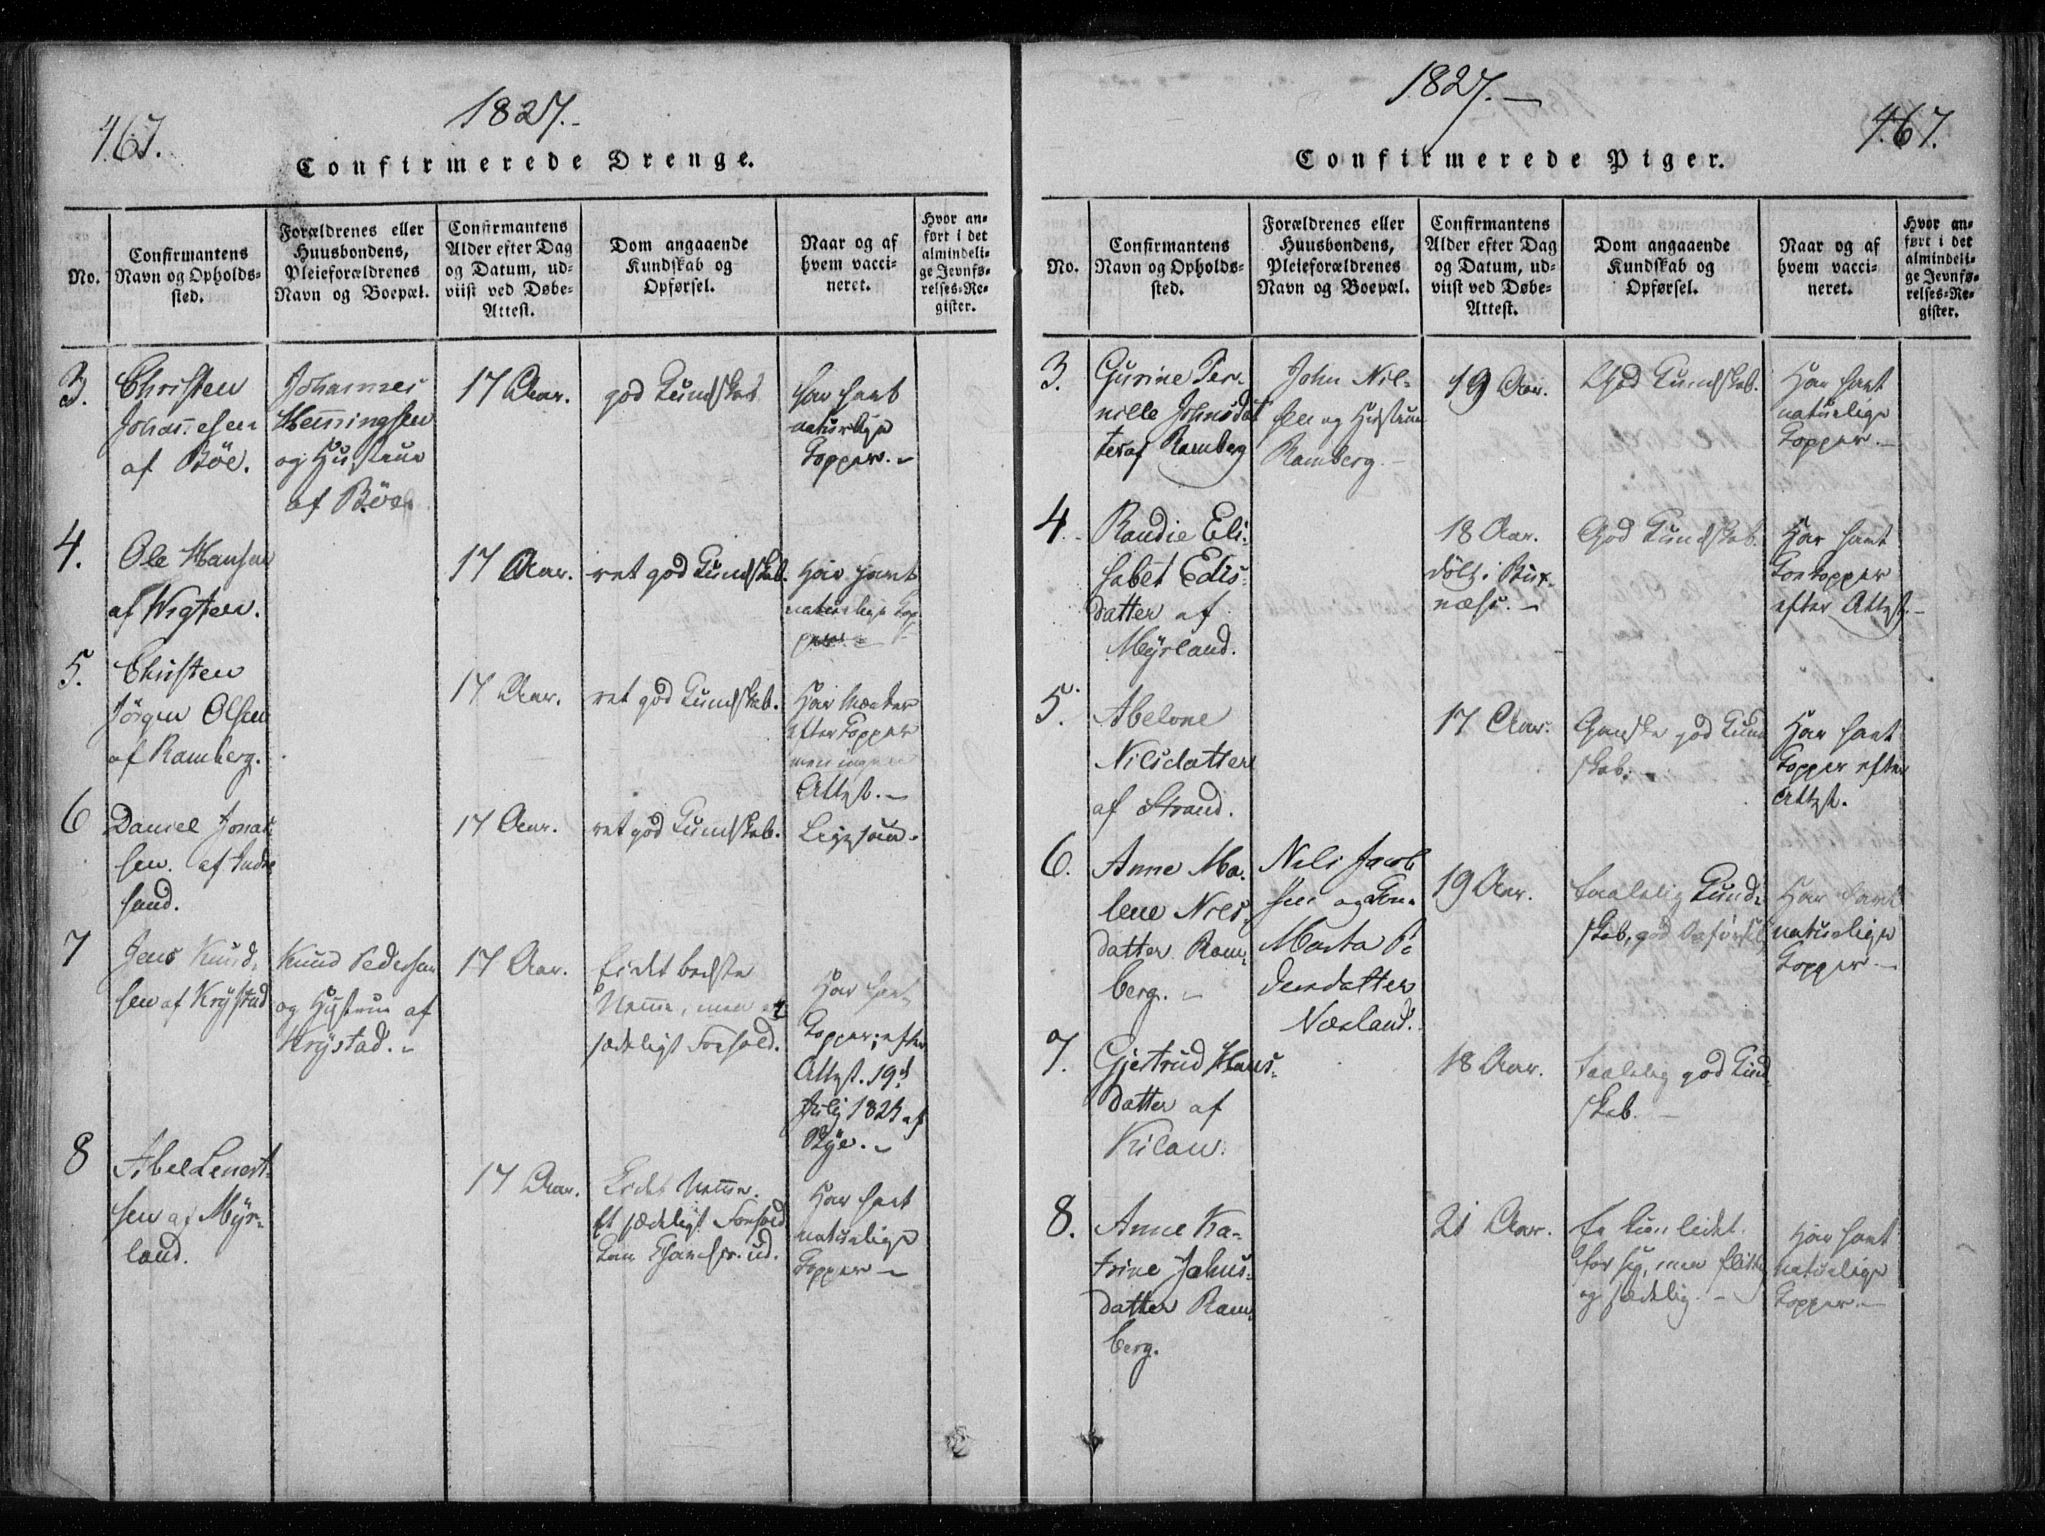 467.
1827.-
Confirmerede Drenge.
No.
Confirmantens
Navn og Opholds-
sted.
Forældrenes eller
Huusbondens,
Pleieforældrenes
Navn og Boepæl.
Confirmantens
Alder efter Dag
og Datum, ud-
viist ved Døbe-
Attest.
Dom angaaende
Kundskab og
Opførsel.
Naar og af
hvem vacci-
neret.
Hvor an-
ført i det
almindeli-
ge Jevnfø-
relses-Re-
gister.
3.
Christen
Johannesen
af Böe.
Johannes
Hemingsen
og Hustrue
af Böe
17 Aar.
god Kundskab
har havt
naturlige
Kopper.-
4.
Ole Hansen
af Wigten.
17 Aar.
ret god Kundskab.
Har havt
naturlige Kop-
per.-
5.
Christen
Jörgen Olsen
af Ramberg.
17 Aar.
ret god Kundskab.
Har Mærker
efter Kopper
men ingen
Attest.-
6
Daniel Jonas
sen. af Indre
sand.
17 Aar.
ret god Kundskab.
Ligesaa.
7
Jens Knud-
sen af Krÿstad
Knud Pedersen
og Hustrue af
Krÿstad.-
17 Aar.
Eidet bedste
Nemme, men et
sædeligt Forhold.
Har havt
Kopper; efter
Attest. 19d
Julÿ 1825 af
Rÿe.-
8
Abel Lenert-
sen af Mÿr-
land.
17 Aar.
Lidet Nemme.
Et sædeligt Forhold
Har havt
naturlige
Kopper-
1827.-
467.
Confirmerede Piger.
No.
Confirmantens
Navn og Opholds-
sted.
Forældrenes eller
Huusbondens,
Pleieforældrenes
Navn og Boepæl.
Confirmantens
Alder efter Dag
og Datum, ud-
viist ved Døbe-
Attest.
Dom angaaende
Kundskab og
Opførsel.
Naar og af
hvem vacci-
neret.
Hvor an-
ført i det
almindeli-
ge Jevnfø-
relses-Re-
gister.
3.
Gurine Per-
nille Johnsdat
ter af Ramberg
John Nil-
sen og Hustrue
Ramberg.-
19 Aar.
God Kundskab.
Har havt
naturlige
Kopper.-
4.
Randie Eli-
sabet Edis-
datter af
Mÿrland.
18 Aar.
döbt i Bux-
næss.-
God Kundskab.
Har havt
Kokopper
efter Attest.-
5.
Abelone
Nilsdatter
af Strand.
17 Aar.
Ganske god Kund
skab.
Har havt
Kopper efter
Attest.
6.
Anne Ma-
lene Niels-
datter Ram-
berg.-
Nils Jacob
sen og Kone
Marta Pe
dersdatter
Næsland.
19 Aar.
taalelig Kund-
skab, god Opførsel
Har havt
naturlige
Kopper-
7.
Gjertrud Hans-
datter af
Kilan.
18 Aar.
taalelig god Kund-
skab.-
8.
Anne Ka-
trine Johns-
datter Ram-
berg.
21 Aar.
kun lidet
for sig, men flittig
og sædelig.-
Har havt
naturlige
Kopper.-